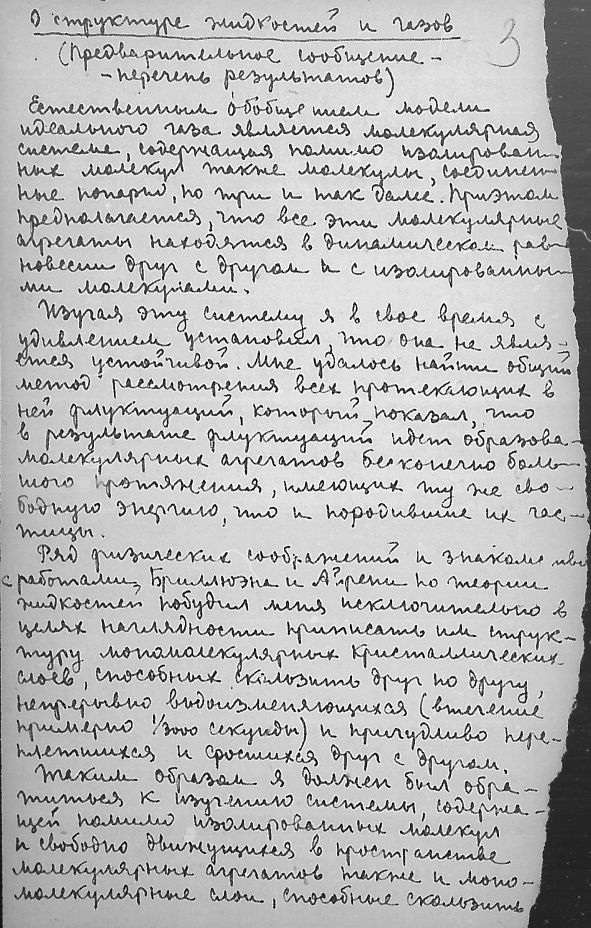 О структуре жидкостей и газов
3
(Предварительное сообщение –
– перечень результатов)
Естественным обобщением модели
идеального газа является молекулярная
система, содержащая помимо изолирован-
ных молекул также молекулы, соединен-
ные попарно, по три и так далее. При этом
предполагается, что все эти молекулярные
агрегаты находятся в динамическом рав-
новесии друг с другом и с изолированны-
ми молекулами.
Изучая эту систему я в свое время с
удивлением установил, что она не явля-
ется устойчивой. Мне удалось найти общий
метод рассмотрения всех протекающих в
ней флуктуаций, который показал, что
в результате флуктуаций идет образова-
молекулярных агрегатов бесконечно боль-
шого протяжения, имеющих ту же сво-
бодную энергию, что и породившие их час-
тицы.
Ряд физических соображений и знакомс
с работами Бриллюэна и Айрени по теории
жидкостей побудил меня исключительно в
целях наглядности приписать им струк-
туру мономолекулярных кристаллических
слоев, способных скользить друг по другу,
непрерывно видоизменяющихся (втечение
примерно 1/3000 секунды) и причудливо пере-
плетшихся и сросшихся друг с другом.
Таким образом я должен был обра-
титься к изучению системы, содержа-
щей помимо изолированных молекул
и свободно движущихся в пространстве
молекулярных агрегатов также и моно-
молекулярные слои, способные скользить